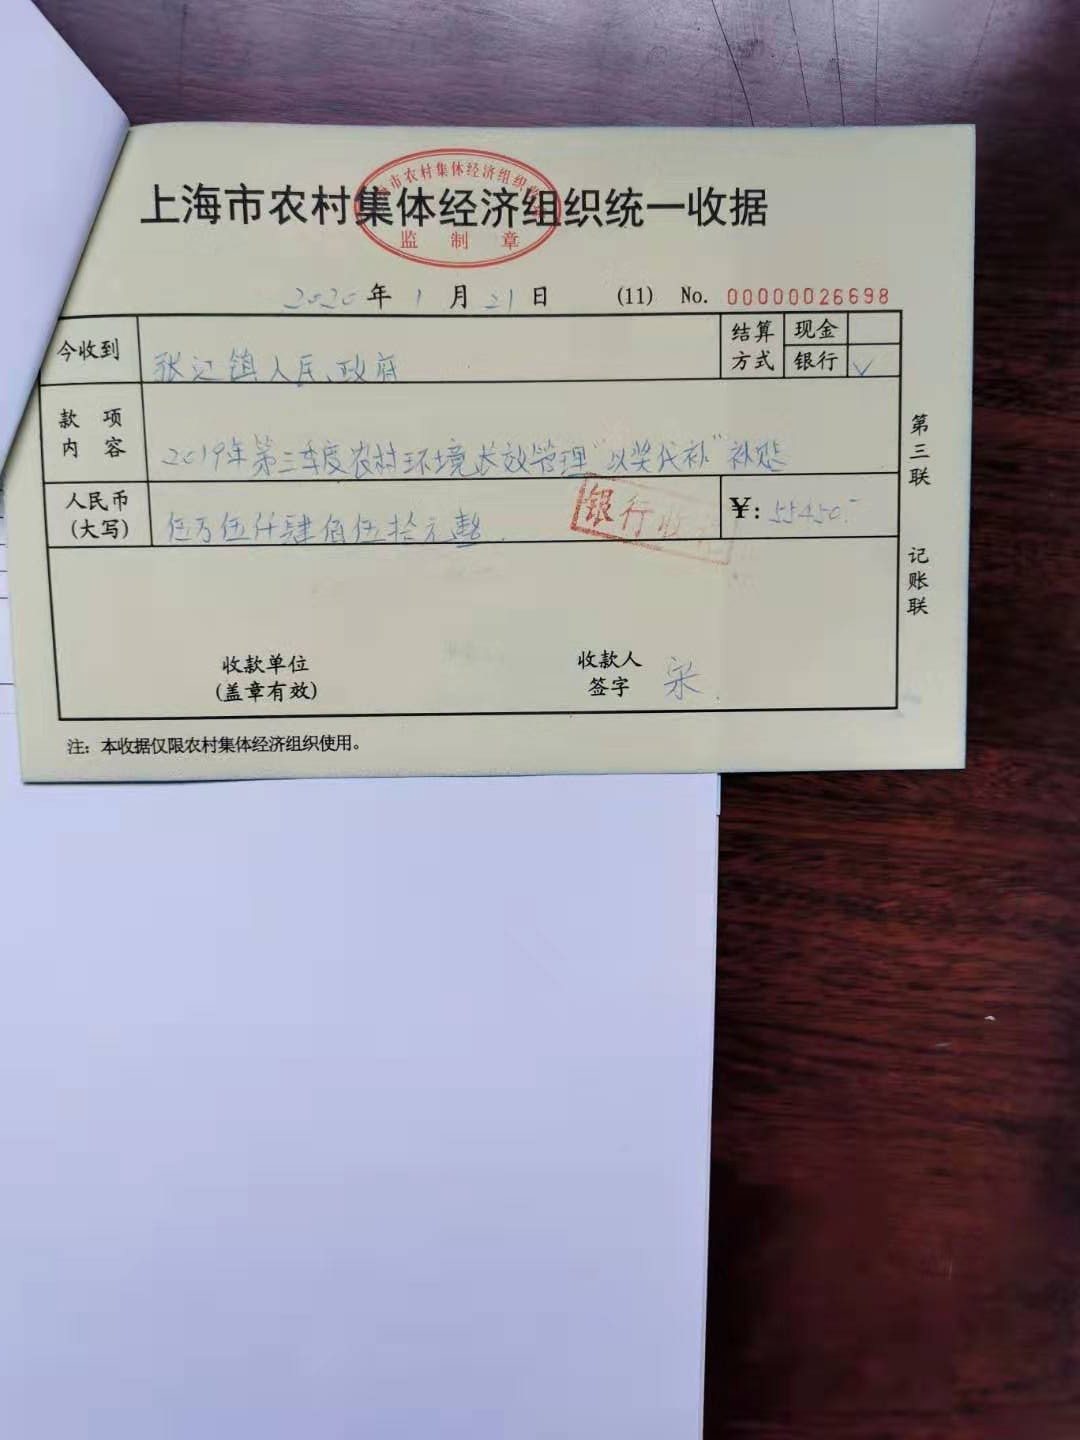 上海市农村集体经济组织统一收据
市农村集体经济组织
监制章
2020年1月21日 (11) No. 00000026698
今收到 张江镇人民政府 结算方式 现金 银行 √
款项内容 2019年第三季度农村环境长效管理"以奖代补"补贴
人民币(大写) 伍万伍仟肆佰伍拾元整. ¥: 55450.-
银行收
收款单位(盖章有效) 收款人签字 宋.
注: 本收据仅限农村集体经济组织使用。
第三联 记账联